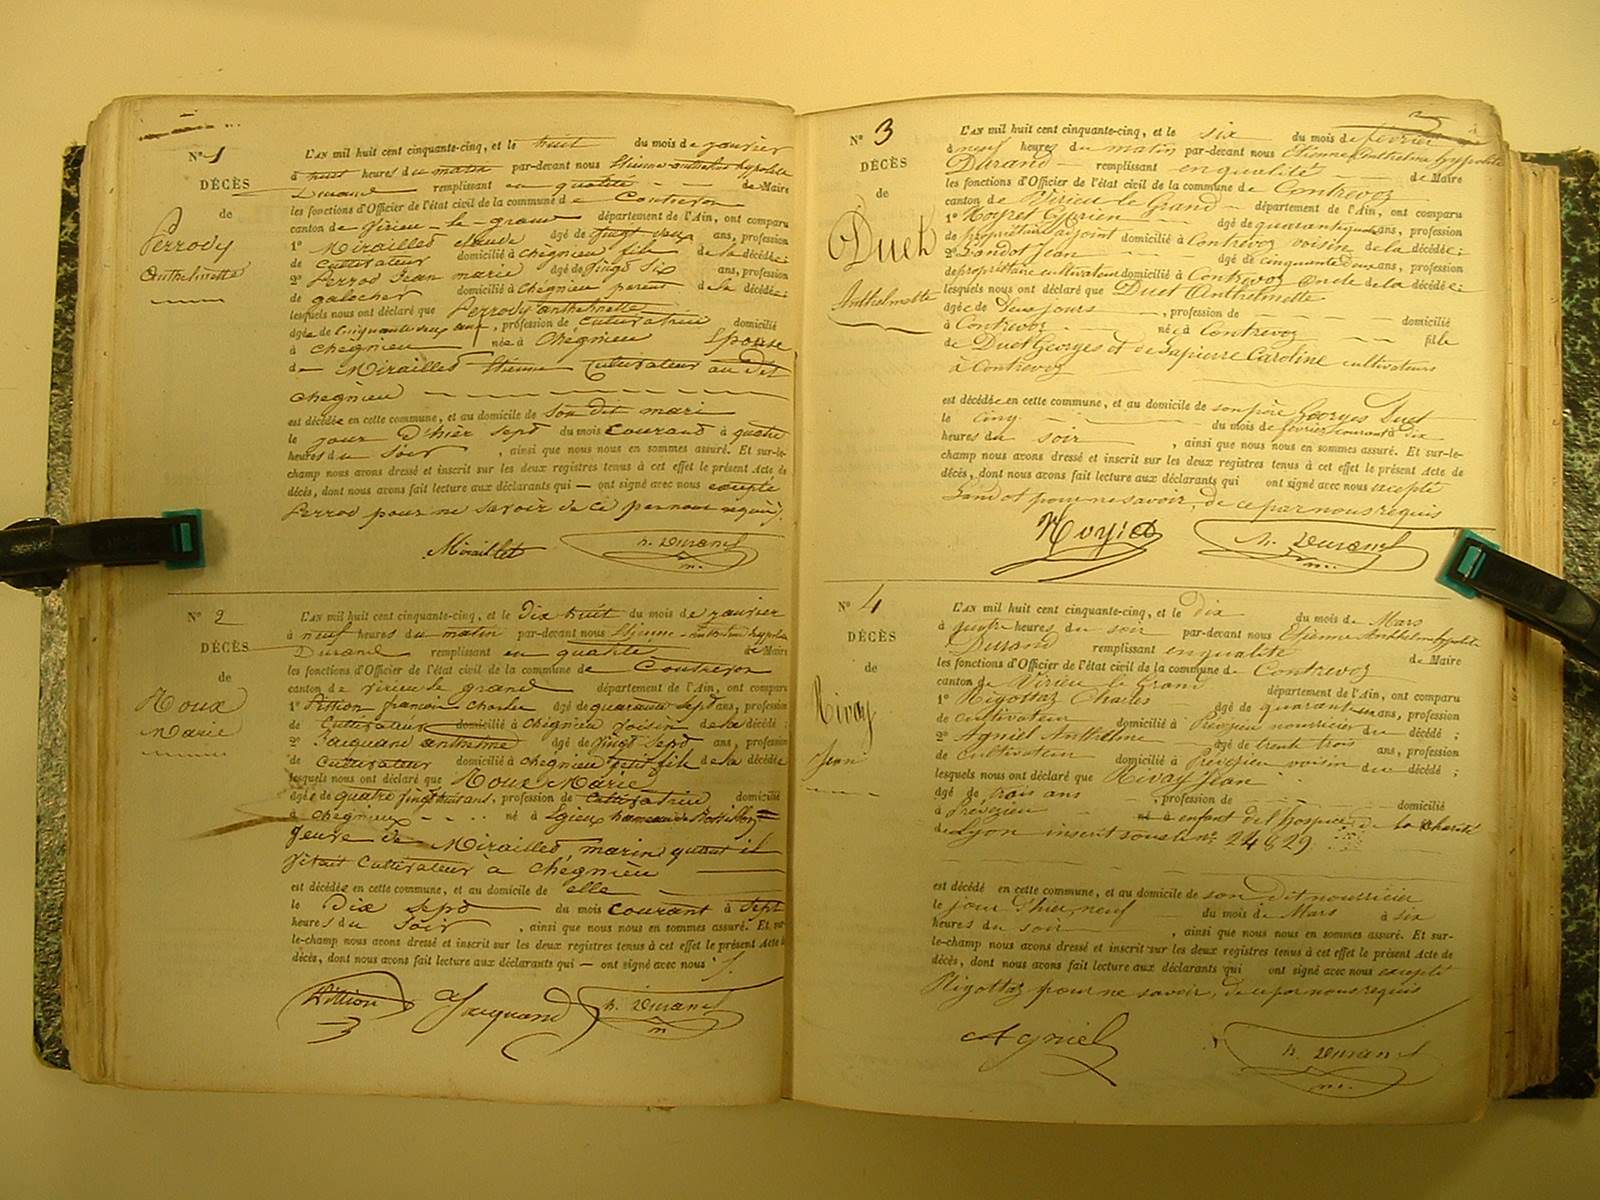 N° 1
DÉCÈS
de
Perrody
Anthelmette
L'AN mil huit cent cinquante-cinq, et le huit du mois de janvier
à huit heures du matin par-devant nous Etienne anthelme hypolite
Durand remplissant en qualité de Maire
les fonctions d'Officier de l'état civil de la commune de Contrevoz
canton de Virieu-le-grand département de l'Ain, ont comparu
1° Mirailled claude âgé de vingt ans, profession
de Cultivateur domicilié à chégnieu fils de la décédée;
2° Perrod Jean marie âgé de vingt six ans, profession
de galocher domicilié à chégnieu parent de la décédée;
lesquels nous ont déclaré que Perrody anthelmette
âgée de Cinquante deux ans, profession de Cultivatrice domicilié
à chégnieu née à Chégnieu Epouse
de Mirailled Etienne Cultivateur au dit
chégnieu
est décédée en cette commune, et au domicile de son dit mari
le jour d'hier sept du mois courand à quatre
heures du Soir, ainsi que nous nous en sommes assuré. Et sur-le-
champ nous avons dressé et inscrit sur les deux registres tenus à cet effet le présent Acte de
décès, dont nous avons fait lecture aux déclarants qui — ont signé avec nous excepté
Perrod pour ne savoir de ce par nous requis.
Miraillet h. Durand
m.
N° 2
DÉCÈS
de
Roux
Marie
L'AN mil huit cent cinquante-cinq, et le Dix huit du mois de janvier
à neuf heures du matin par-devant nous Etienne-anthelme hypolite
Durand remplissant en qualité de Maire
les fonctions d'Officier de l'état civil de la commune de Contrevoz
canton de Virieu le grand département de l'Ain, ont comparu
1° Pittion françois charles âgé de quarante sept ans, profession
de Cultivateur domicilié à chégnieu Voisin de la décédé;
2° Jacquand anthelme âgé de vingt sept ans, profession
de Cultivateur domicilié à chégnieu petit fils de la décédée
lesquels nous ont déclaré que Roux Marie
âgée de quatre vingt huit ans, profession de Cultivatrice domicilié
à chégnieux né à Egieux hameau de Rossillon
Veuve de Mirailled marin quant il
Vivait Cultivateur à Chégnieu
est décédée en cette commune, et au domicile de elle
le Dix sept du mois courant à Sept
heures du Soir, ainsi que nous nous en sommes assuré. Et sur
le-champ nous avons dressé et inscrit sur les deux registres tenus à cet effet le présent Acte
décès, dont nous avons fait lecture aux déclarants qui — ont signé avec nous
Pittion Jacquand h. Durand
m
3
N° 3
DÉCÈS
de
Duet
Anthelmette
L'AN mil huit cent cinquante-cinq, et le six du mois de février
à neuf heures du matin par-devant nous Etienne Anthelme hypolite
Durand remplissant en qualité de Maire
les fonctions d'Officier de l'état civil de la commune de Contrevoz
canton de Virieu le Grand département de l'Ain, ont comparu
1° Noyret Cyprien âgé de quarante ans, profession
de propriétaire adjoint domicilié à Contrevoz voisin de la décédée;
2° Landot Jean âgé de cinquante deux ans, profession
de propriétaire cultivateur domicilié à Contrevoz Oncle de la décédée;
lesquels nous ont déclaré que Duet Anthelmette
âgée de deux jours, profession de domicilié
à Contrevoz née à Contrevoz fille
de Duet Georges et de Lapierre Caroline cultivateurs
à Contrevoz
est décédée en cette commune, et au domicile de son père Georges Duet
le cinq du mois de février courant à dix
heures du soir, ainsi que nous nous en sommes assuré. Et sur-le-
champ nous avons dressé et inscrit sur les deux registres tenus à cet effet le présent Acte de
décès, dont nous avons fait lecture aux déclarants qui ont signé avec nous excepté
Landot pour ne savoir, de ce par nous requis
h. Durand
m.
N° 4
DÉCÈS
de
Rivay
Jean
L'AN mil huit cent cinquante-cinq, et le dix du mois de Mars
à quatre heures du soir par-devant nous Etienne Anthelme hypolite
Durand remplissant en qualité de Maire
les fonctions d'Officier de l'état civil de la commune de Contrevoz
canton de Virieu le Grand département de l'Ain, ont comparu
1° Rigottaz Charles âgé de quarante ans, profession
de cultivateur domicilié à Prévezieu nourricier du décédé;
2° Agniel Anthelme âgé de trente trois ans, profession
de cultivateur domicilié à Prévezieu voisin du décédé;
lesquels nous ont déclaré que Rivay Jean
âgé de trois ans, profession de domicilié
à Prévezieu né à enfant de l'hospice de la Charité
de Lyon inscrit sous le n° 24829
est décédé en cette commune, et au domicile de son dit nourricier
le jour d'hier neuf du mois de Mars à six
heures du soir, ainsi que nous nous en sommes assuré. Et sur-
le-champ nous avons dressé et inscrit sur les deux registres tenus à cet effet le présent Acte de
décès, dont nous avons fait lecture aux déclarants qui ont signé avec nous excepté
Rigottaz pour ne savoir, de ce par nous requis
Agniel h. Durand
m.